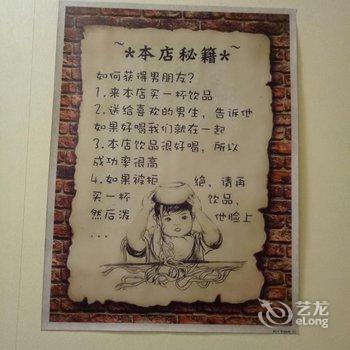 ~*本店秘籍*~
如何获得男朋友?
1.来本店买一杯饮品
2.送给喜欢的男生，告诉他
如果好喝我们就在一起
3.本店饮品很好喝，所以
成功率很高
4.如果被拒绝，请再
买一杯饮品，
然后泼他脸上
...
艺龙
eLong